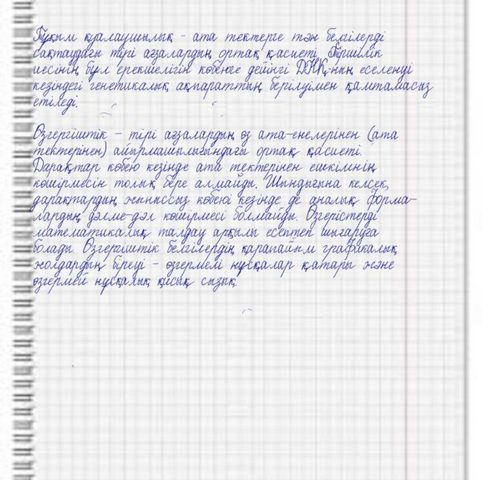 Тұқым қуалаушылық - ата тектерге тән белгілерді
сақтаудағы тірі ағзалардың ортақ қасиеті. Тіршілік
иесінің бұл ерекшелігін көбеюге дейінгі ДНҚ-ның еселенуі
кезіндегі генетикалық ақпараттың берілуімен қамтамасыз
етіледі.
Өзгергіштік – тірі ағзалардың өз ата-енелерінен (ата
тектерінен) айырмашылығындағы ортақ қасиеті.
Дарақтар көбею кезінде ата тектерінен ешкімнің
көшірмесін толық бере алмайды. Шындығына келсек,
дарақтардың жыныссыз көбеюі кезінде де аналық форма-
лардың дәлме-дәл көшірмесі болмайды. Өзгерістерді
математикалық талдау арқылы есептеп шығаруға
болады. Өзгергіштік белгілердің қарапайым графикалық
жолдардың біреуі – өзгермелі нұсқалар қатары және
өзгермелі нұсқалық қисық сызық.